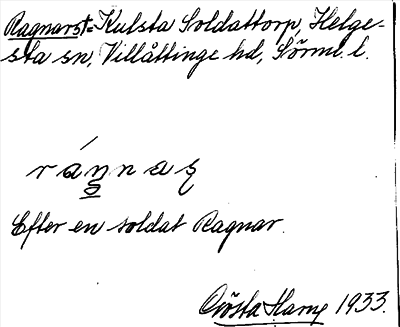 Ragnarst = Kulsta Soldattorp, Helge-
sta sn, Villåttinge hd, Sörml. l.
Efter en soldat Ragnar.
Gösta Harry 1933.